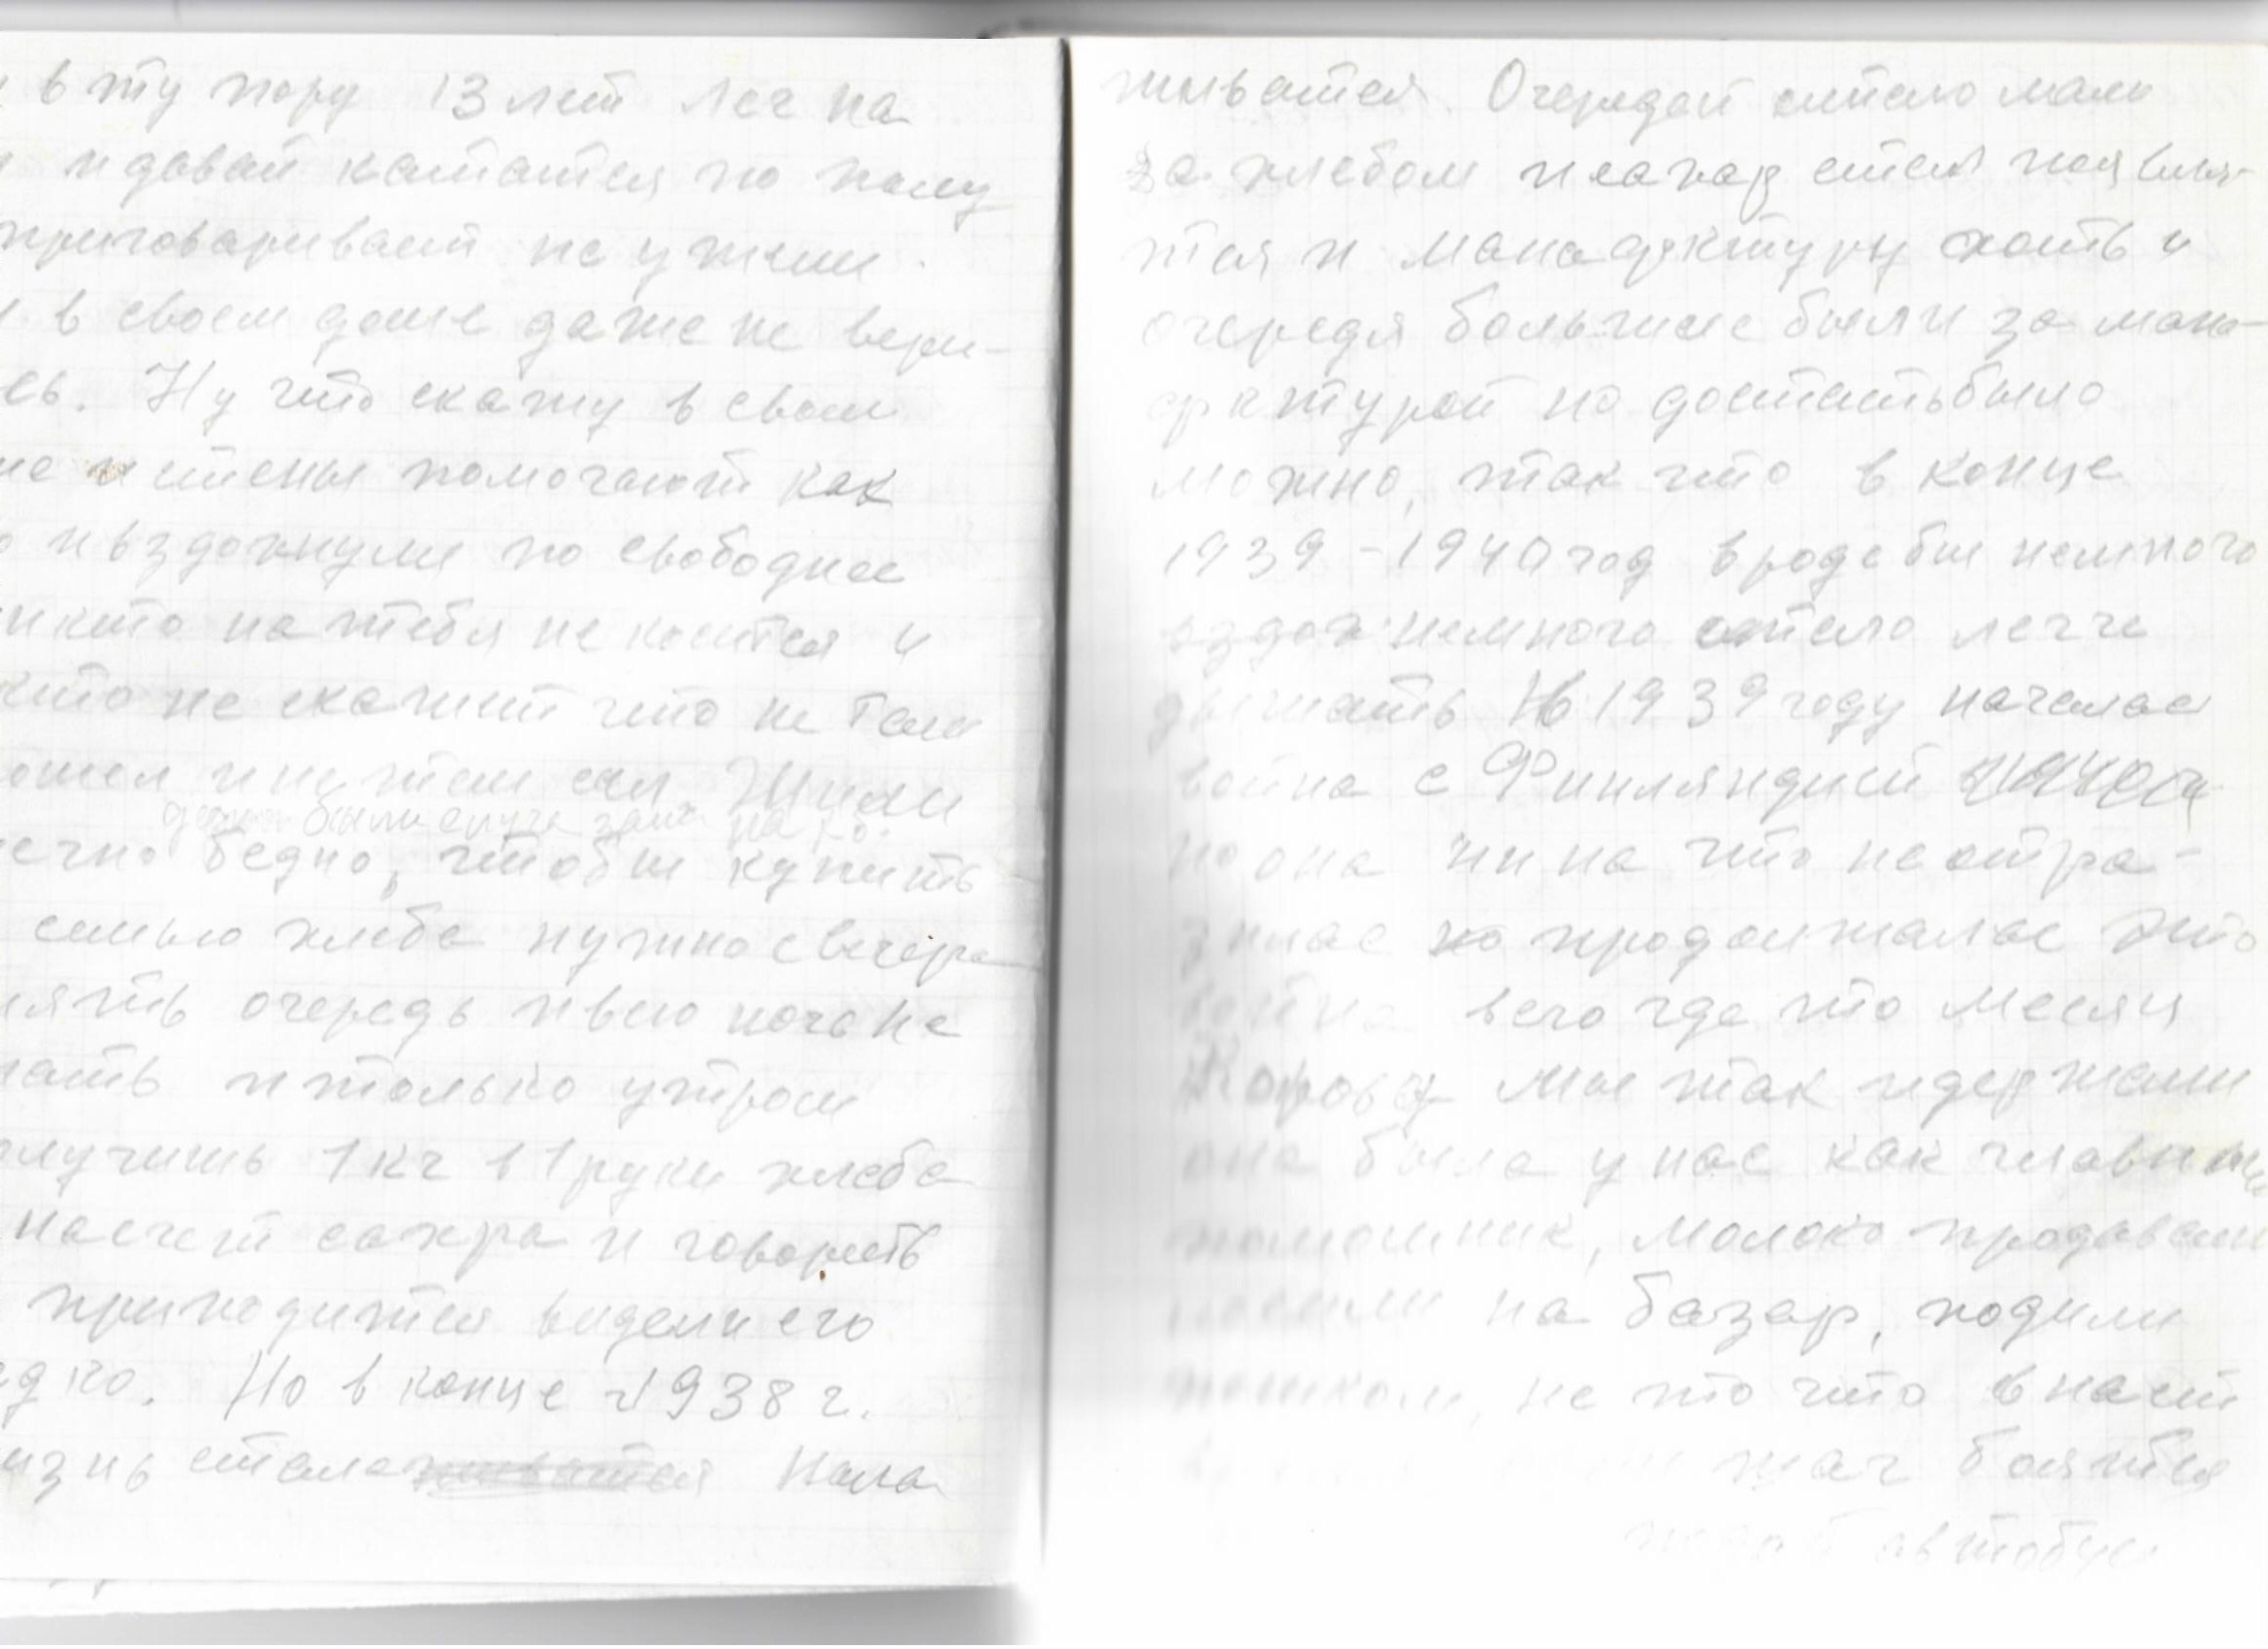 в ту пору 13 лет лег на
и давай кататся по полу
приговаривает не ужели.
в своем доме даже не вери-
сь. Ну что скажу в своем
ме и стены помогают как
о и вздохнули по свободнее
никто на тебя не косится и
кто не скажит что не там
ошел и не там сел Жили
были на
ечно бедно, чтобы купить
семью хлеба нужно с вечера
нять очередь и всю ночь не
пать и только утром
олучишь 1 кг в 1 руки хлеба
насчет сахра и говореть
приходится видели его
едко. Но в конце 1938 г.
изнь стала нала
живатся. Очередей стало мало
за хлебом и сахар стал появля-
тся и манафктуру хоть и
очередя большие были за мана-
фктурой но достать было
можно, так что в конце
1939-1940 год вроде бы немного
вздох немного стало легче
дышать Но в 1939 году началас
война с Финляндией
но она ни на что не отра-
зилас но продолжалас это
война всего где то месяц
Корову мы так и держали
она была у нас как главный
помошник, молоко продавали
носили на базар, ходили
пешком, не то что в наст
шаг боятся
автобус